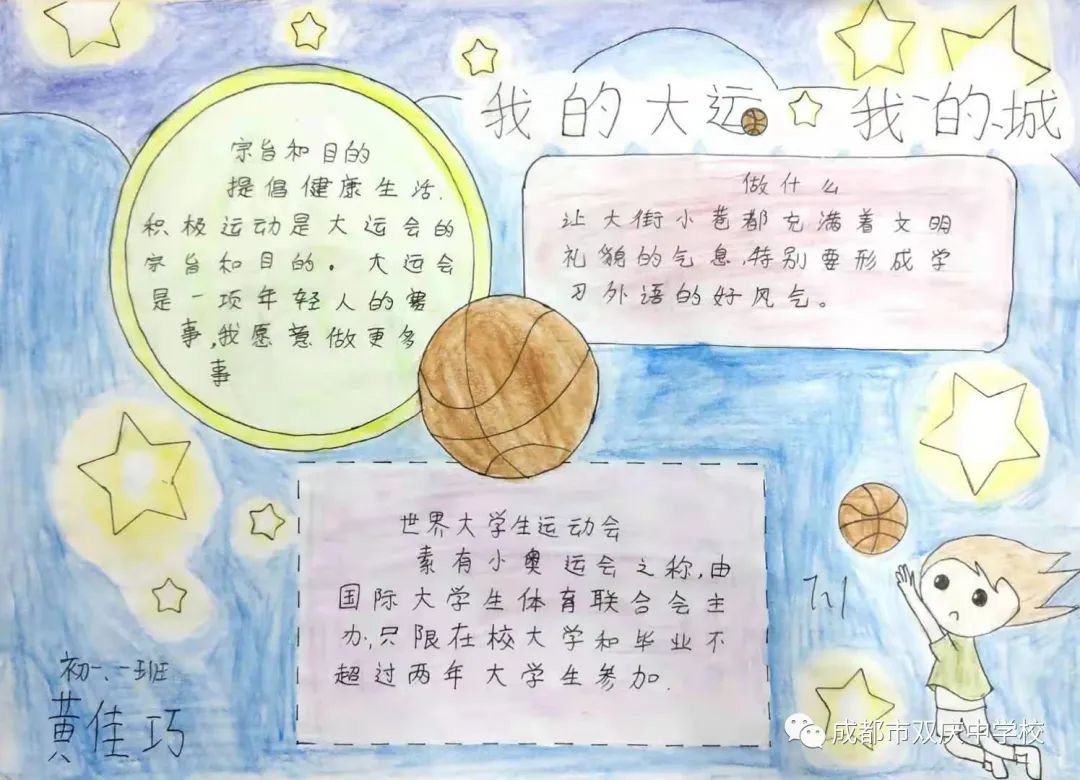 我的大运☆我的城
宗旨和目的
提倡健康生活.
积极运动是大运会的
宗旨和目的。大运会
是一项年轻人的赛
事,我愿意做更多
事
做什么
让大街小巷都充满着文明
礼貌的气息,特别要形成学
习外语的好风气。
世界大学生运动会
素有小奥运会之称,由
国际大学生体育联合会主
办,只限在校大学和毕业不
超过两年大学生参加.
初一、一班
黄佳巧
成都市双庆中学校